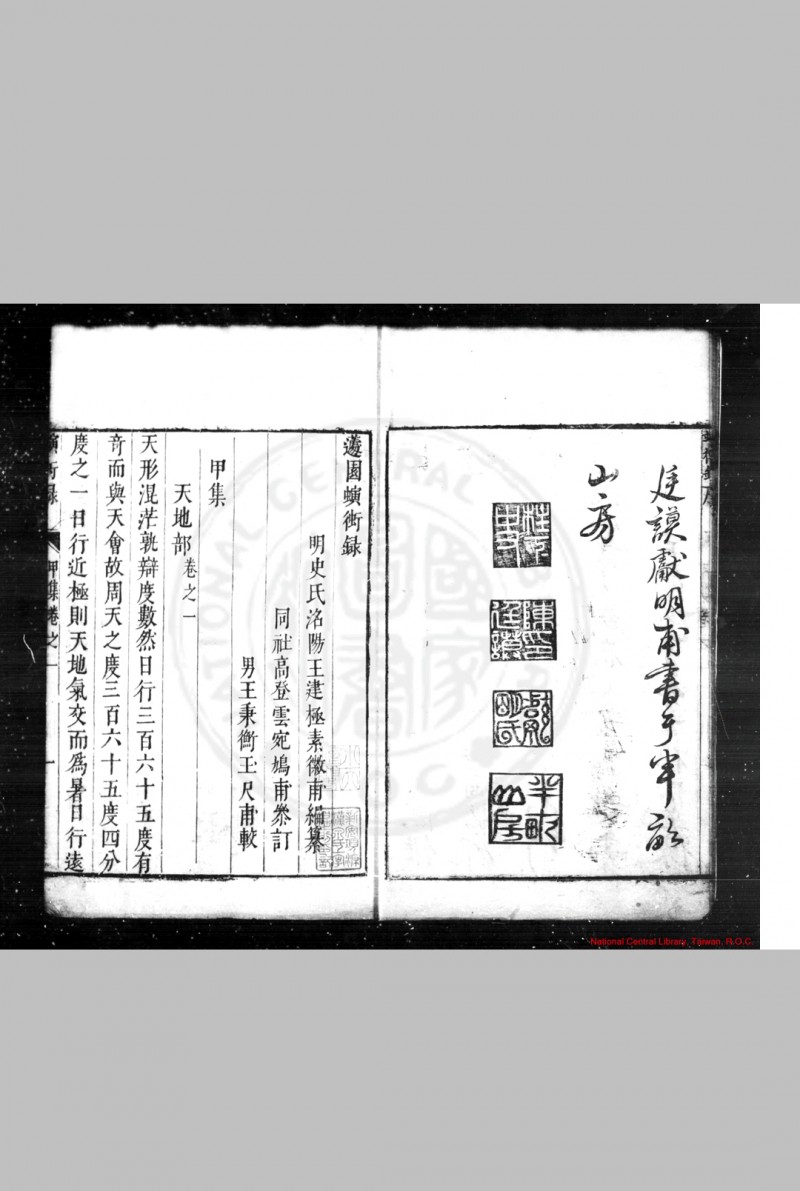 廷謨獻明甫書于半畝
山房
半畝
山房
蘧園蠙衖録
明史氏洛陽王建極素徽甫編纂
同社高登雲宛鳩甫叅訂
男王秉衡玉尺甫較
甲集
天地部卷之一
天形混茫孰辯度數然日行三百六十五度有
竒而與天會故周天之度三百六十五度四分
度之一日行近極則天地氣交而爲暑日行遠
衖録
甲集卷之一
一
NATIONAL CENTRAL
國家
圖書
National Central Library, Taiwan, R.O.C.